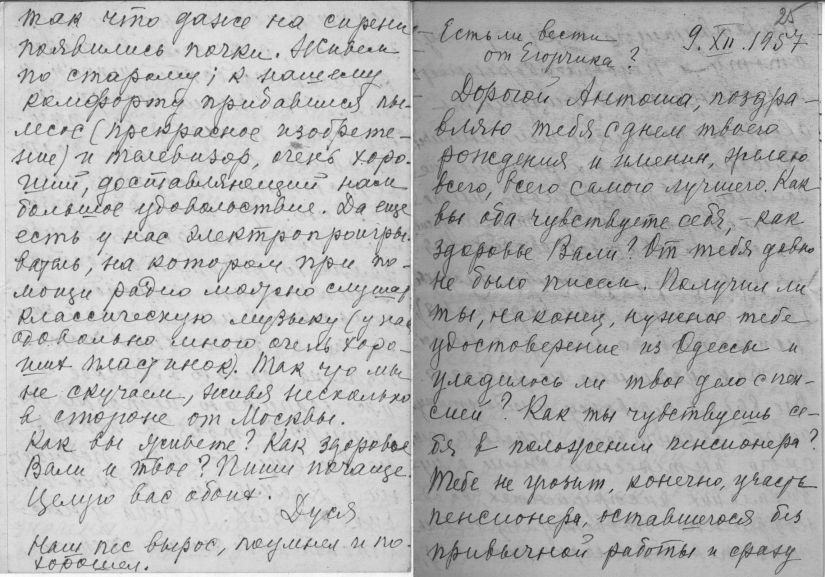 так что даже на сирени
появились почки. Живем
по старому; к нашему
комфорту прибавился пы-
лесос (прекрасное изобрете-
ние) и телевизор, очень хоро-
ший, доставляющий нам
большое удовольствие. Да еще
есть у нас электропроигры-
ватель, на котором при по-
мощи радио можно слушать
классическую музыку (у нас
довольно много очень хоро-
ших пластинок). Так что мы
не скучаем, живя несколько
в стороне от Москвы.
Как вы живете? Как здоровье
Вали и твое? Пиши почаще.
Целую вас обоих.
Дуся
Наш пес вырос, поумнел и по-
хорошел.
25
Есть ли вести
от Егорчика?
9.XII.1957
Дорогой Антоша, поздра-
вляю тебя с днем твоего
рождения и именин, желаю
всего, всего самого лучшего. Как
вы оба чувствуете себя, - как
здоровье Вали? От тебя давно
не было писем. Получил ли
ты, наконец, нужное тебе
удостоверение из Одессы и
уладилось ли твое дело с пен-
сией? Как ты чувствуешь се-
бя в положении пенсионера?
Тебе не грозит, конечно, участь
пенсионера, оставшегося без
привычной работы и сразу